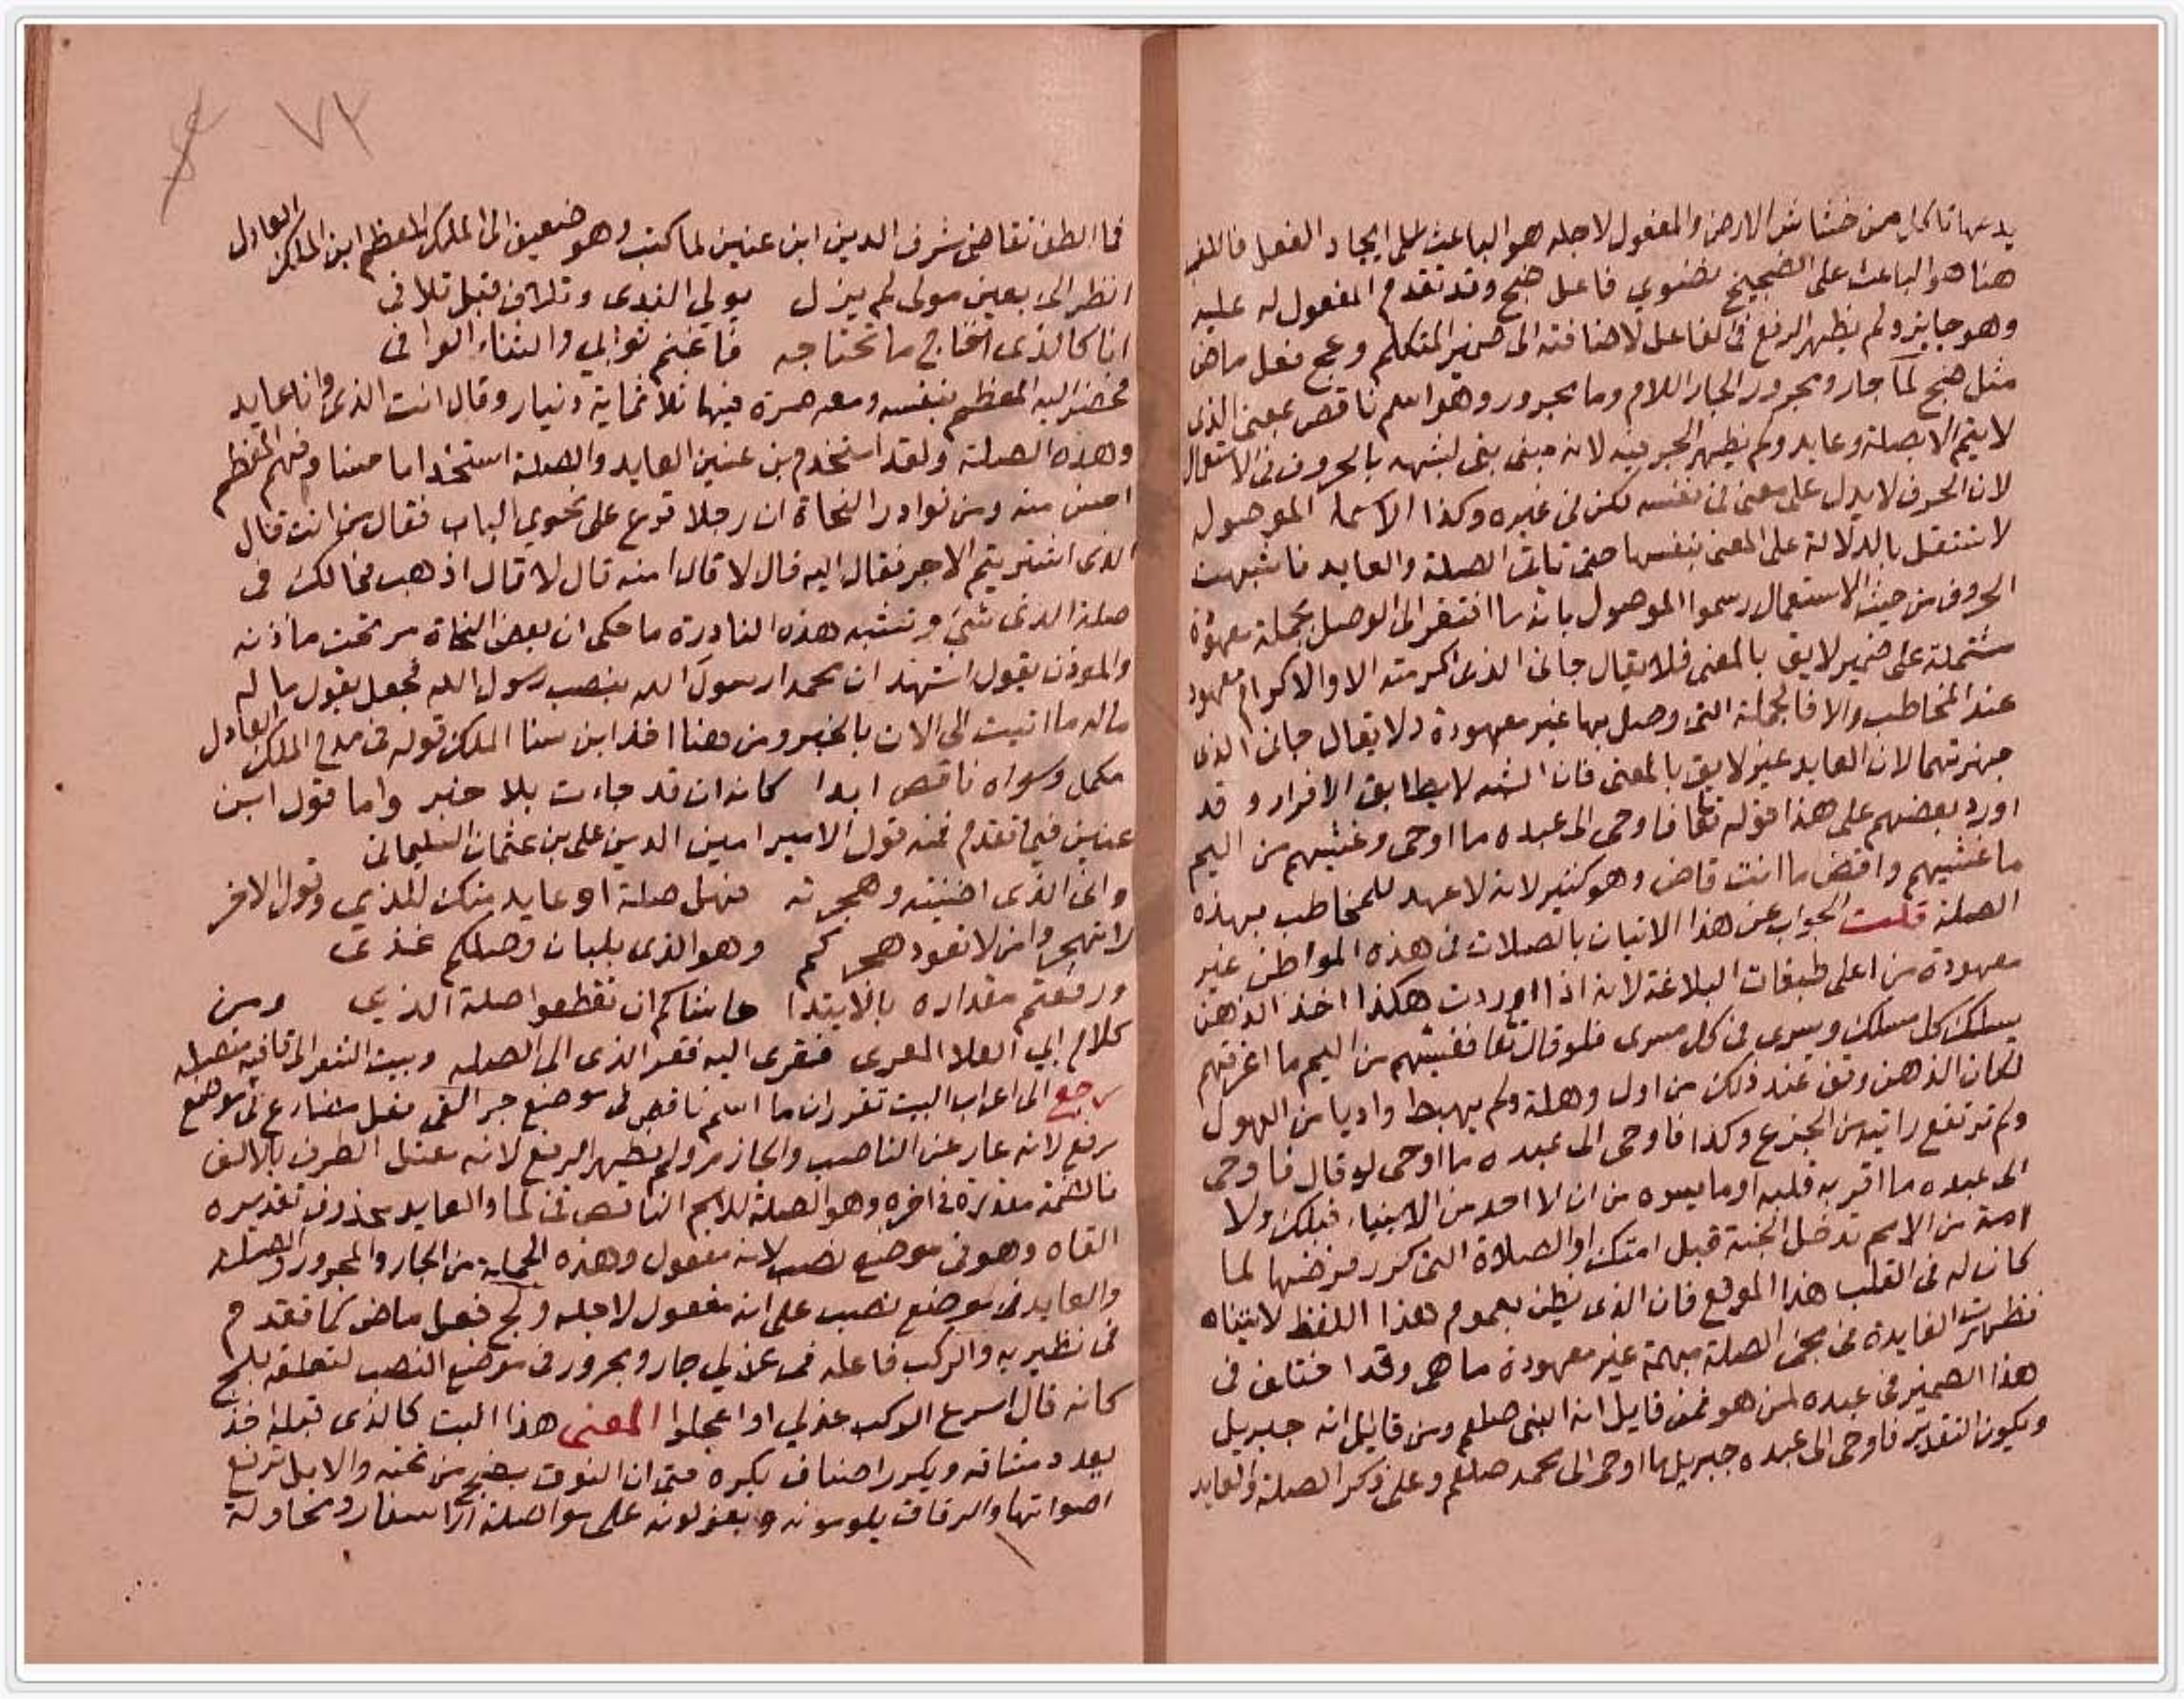 يدعها تاكل من خشاش الارض والمفعول لاجله هو الباعث على ايجاد الفعل فاللغب
هنا هو الباعث على الضجيج نضوي فاعل ضج وقد تقدم المفعول له عليه
وهو جايز ولم يظهر الرفع فى الفاعل لاضافته الى ضمير المتكلم وعج فعل ماض
مثل ضج لما جار ومجرور الجار اللام وما مجرور وهو اسم ناقص بمعنى الذى
لا يتم الا بصلة وعايد ولم يظهر الجر فيه لانه مبنى بنى لشبهه بالحروف فى الاستعمال
لان الحرف لا يدل على معنى فى نفسه لكن فى غيره وكذا الاسما الموصولة
لا تستقل بالدلالة على المعنى بنفسها حتى تاتى الصلة والعايد فاشبهت
الحروف من حيث الاستعمال رسموا الموصول بانه ما افتقر الى الوصل بجملة معهودة
مشتملة على ضمير لايق بالمعنى فلا يقال جانى الذى اكرمته الا والاكرام معهود
عند المخاطب والا فالجملة التى وصل بها غير معهودة ولا يقال جانى الذى
ضربتهما لان العايد غير لايق بالمعنى فان التثنيه لا يطابق الافراد و قد
اورد بعضهم على هذا قوله تعا فاوحى الى عبده ما اوحى وغشيهم من اليم
ما غشيهم واقض ما انت قاض وهو كثير لانه لا عهد للمخاطب بهذه
الصلة قلت الجواب عن هذا الاتيان بالصلات فى هذه المواطن غير
معهودة من اعلى طبقات البلاغة لانه اذا اوردت هكذا اخذ الذهن
يسلك كل مسلك ويسرى فى كل مسرى فلو قال تعا فغشيهم من اليم ما اغرقهم
لكان الذهن وقف عند ذلك من اول وهلة ولم يهبط واديا من الهول
ولم ترتفع رابية من الجزع وكذا فاوحى الى عبده ما اوحى لو قال فاوحى
الى عبده ما اقر به قلبه او ما يسره من ان لا احد من الانبياء قبلك ولا
امة من الامم تدخل الجنة قبل امتك او الصلاة التى كرر فرضها لما
كان له فى القلب هذا الموقع فان الذى يظن بعموم هذا اللفظ لا يتناه
فظهرت الفايدة فى مجى الصلة مبهمة غير معهودة ما هى وقد اختلف فى
هذا الضمير فى عبده لمن هو فمن قايل انه النبى صلعم ومن قايل انه جبريل
ويكون التقدير فاوحى الى عبده جبريل ما اوحى الى محمد صلعم وعلى ذكر الصلة والعايد
٧٢
فما الطف تقاضى شرف الدين ابن عنين لما كتب وهو ضعيف الى الملك المعظم ابن الملك العادل
انظر الى بعين مولى لم يزل يولى الندى وتلاف قبل تلافى
انا كالذى احتاج ما تحتاجه فاغنم ثوابي والثناء الوافى
فحضر اليه المعظم بنفسه ومعه صرة فيها ثلاثماية دينار وقال انت الذى وانا عايد
وهذه الصلة ولقد استخدم بن عنين العايد والصلة استخداما حسنا وفهم المعظم
احسن منه ومن نوادر النحاة ان رجلا قرع على نحوي الباب فقال من انت قال
الذى اشتريتم الاجر فقال اليه قال لا قال امنه قال لا قال اذهب فمالك فى
صلة الذى شى وتشبه هذه النادرة ما حكى ان بعض النحاة مر تحت ماذنه
والموذن يقول اشهد ان محمدا رسول الله بنصب رسول الله فجعل يقول ما له
ما له ما اتيت الى الان بالخبر ومن هنا اخذ ابن سنا الملك قوله فى مدح الملك العادل
مكمل وسواه ناقص ابدا كانه ان قد جاءت بلا خبر واما قول ابن
عنين فيما تقدم فمنه قول الامير امين الدين على بن عثمان السليمانى
وانى الذى اضنيته وهجرته فهل صلة او عايد منك للذي وقول الاخر
لا تهجروا من لا تعود هجركم وهو الذى بلبان وصلكم غذى
ورفعتم مقداره بالابتدا حاشاكم ان تقطعوا صلة الذي ومن
كلام ابي العلا المعرى فقرى اليه فقر الذى الى الصله وبيت الشعر الى قافيه متصله
رجع الى اعراب البيت تقرر ان ما اسم ناقص فى موضع جر القى فعل مضارع فى موضع
رفع لانه عار عن الناصب والجازم ولم يظهر الرفع لانه معتل الطرف بالالف
فالضمة مقدرة فى اخره وهو الصلة للاسم الناقص فى لما والعايد محذوف تقديره
القاه وهو فى موضع نصب لانه مفعول وهذه الجملة من الجار والمجرور والصلة
والعايد فى موضع نصب على انه مفعول لاجله ولج فعل ماض كما تقدم
فى نظيريه والركب فاعله فى عذلي جار ومجرور فى موضع النصب لتعلقه بلج
كانه قال اسرع الركب عذلي او اعجلوا المعنى هذا البت كالذى قبله اخذ
يعدد مشاقه ويكرر اصناف يكره حتى ان النوق يضج من تحته والابل ترفع
اصواتها والرفاق يلومونه و يعذلونه على مواصلة الاسفار ومحاولة